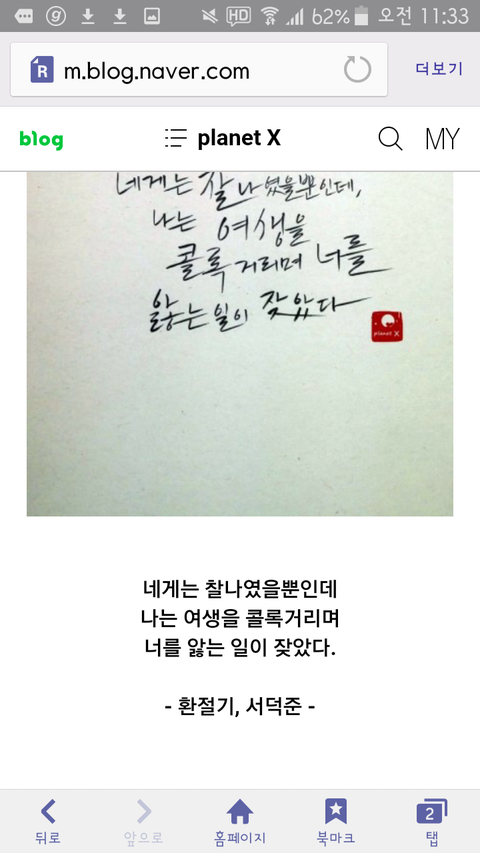 HD 62% 오전 11:33
m.blog.naver.com 더보기
blog planet X MY
네게는 찰나였을뿐인데,
나는 여생을
콜록거리며 너를
앓는 일이 잦았다
planet X
네게는 찰나였을뿐인데
나는 여생을 콜록거리며
너를 앓는 일이 잦았다.
- 환절기, 서덕준 -
2
뒤로 앞으로 홈페이지 북마크 탭